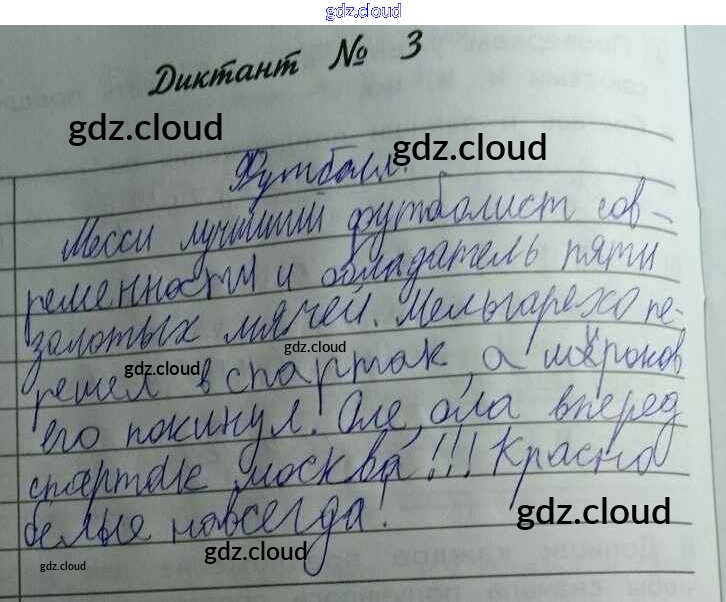 gdz.cloud
Диктант № 3
gdz.cloud
gdz.cloud
Футбол.
Месси лучший футболист сов-
ременности и обладатель пяти
золотых мячей. Мельгарехо пе-
gdz.cloud
решел в спартак, а широков
gdz.cloud
его покинул. Оле, ола вперед
спартак москва!!! Красно
gdz.cloud
белые навсегда!
gdz.cloud
gdz.cloud